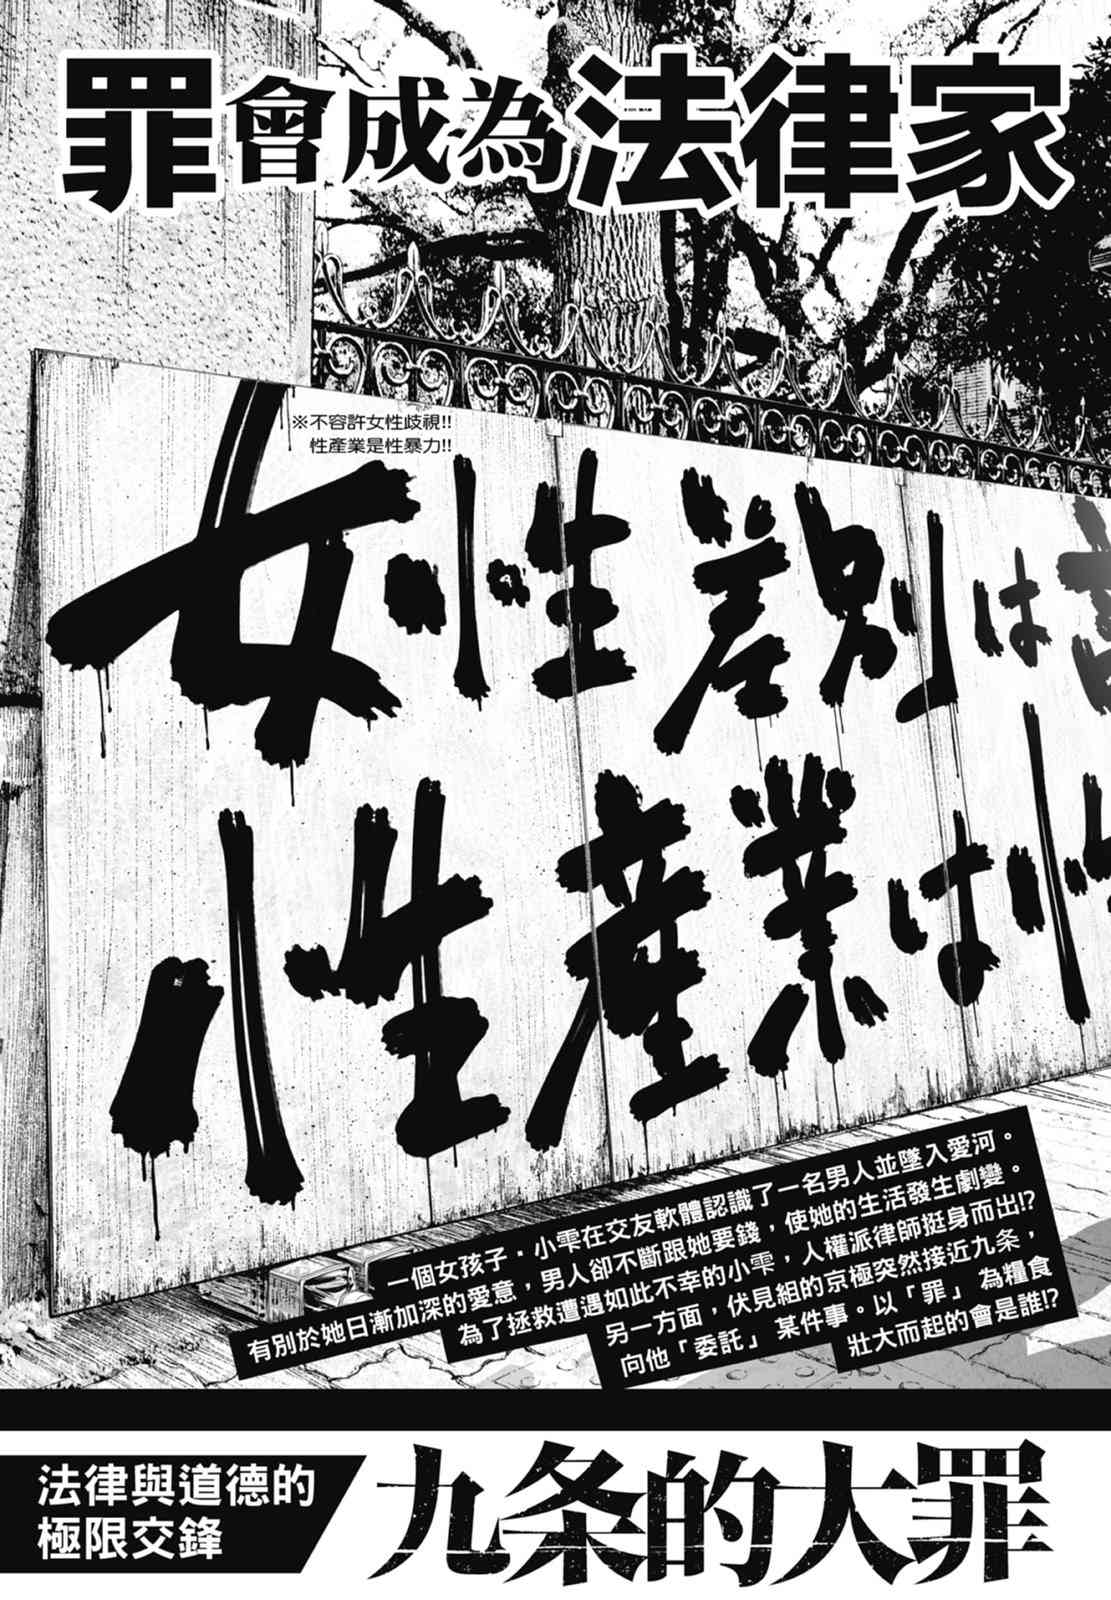 罪會成為法律家
※不容許女性歧視!!
性產業是性暴力!!
女性差別は
性産業は性
一個女孩子・小雫在交友軟體認識了一名男人並墜入愛河。
有別於她日漸加深的愛意，男人卻不斷跟她要錢，使她的生活發生劇變。
為了拯救遭遇如此不幸的小雫，人權派律師挺身而出!?
另一方面，伏見組的京極突然接近九条，
向他「委託」某件事。以「罪」為糧食
壯大而起的會是誰!?
法律與道德的
極限交鋒
九条的大罪